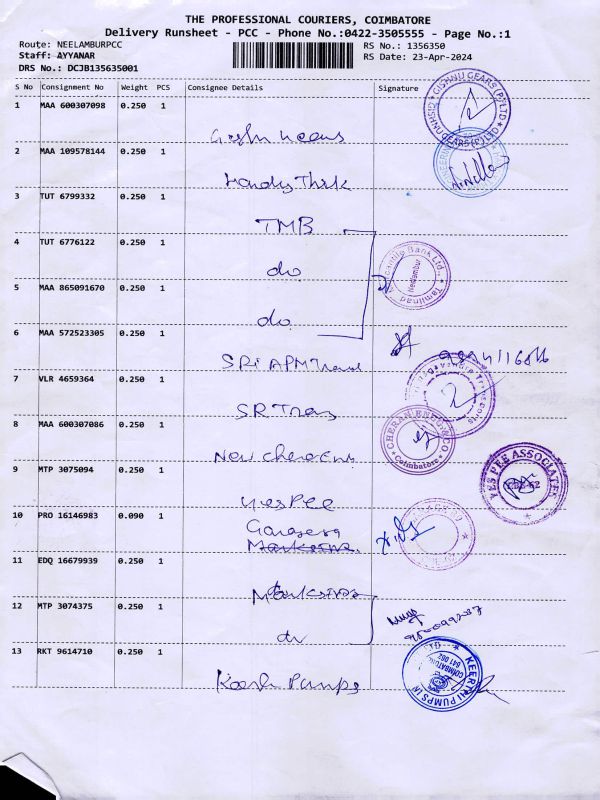 THE PROFESSIONAL COURIERS, COIMBATORE
Delivery Runsheet - PCC - Phone No.:0422-3505555 - Page No.:1
Route: NEELAMBURPCC
RS No.: 1356350
Staff: AYYANAR
RS Date: 23-Apr-2024
DRS No.: DCJB135635001
S No Consignment No Weight PCS Consignee Details Signature
1 MAA 600307098 0.250 1
GISHNU GEARS (P) LTD
2 MAA 109578144 0.250 1
3 TUT 6799332 0.250 1
TMB
4 TUT 6776122 0.250 1
do
Mercantile Bank Ltd., Tamilnad
Neelambur
5 MAA 865091670 0.250 1
do
6 MAA 572523305 0.250 1
SRI APM Trans
7 VLR 4659364 0.250 1
SR Trans
8 MAA 600307086 0.250 1
CHERAN ENGG.CO
Coimbatore
New Cheran
9 MTP 3075094 0.250 1
YES PEE ASSOCIATES
yes Pee
10 PRO 16146983 0.090 1
11 EDQ 16679939 0.250 1
12 MTP 3074375 0.250 1
do
13 RKT 9614710 0.250 1
KEERTHI PUMPS
COIMBATORE
641 062
Keerthi Pumps